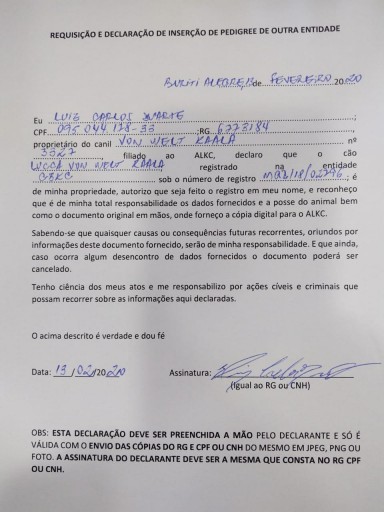 REQUISIÇÃO E DECLARAÇÃO DE INSERÇÃO DE PEDIGREE DE OUTRA ENTIDADE
BURITI ALEGRE 13 de FEVEREIRO 2020
Eu LUIS CARLOS DUARTE ;
CPF 095.044.178-33 ;RG 6773184 ,
proprietário do canil VON WELT KAALA nº
3527, filiado ao ALKC, declaro que o cão
LUCCA VON WELT KAALA registrado na entidade
CBKC sob o número de registro , é
de minha propriedade, autorizo que seja feito o registro em meu nome, e reconheço
que é de minha total responsabilidade os dados fornecidos e a posse do animal bem
como o documento original em mãos, onde forneço a cópia digital para o ALKC.
Sabendo-se que quaisquer causas ou consequências futuras recorrentes, oriundos por
informações deste documento fornecido, serão de minha responsabilidade. E que ainda,
caso ocorra algum desencontro de dados fornecidos o documento poderá ser
cancelado.
Tenho ciência dos meus atos e me responsabilizo por ações cíveis e criminais que
possam recorrer sobre as informações aqui declaradas.
O acima descrito é verdade e dou fé
Data: 13 /02/2020 Assinatura:
(Igual ao RG ou CNH)
OBS: ESTA DECLARAÇÃO DEVE SER PREENCHIDA A MÃO PELO DECLARANTE E SÓ É
VÁLIDA COM O ENVIO DAS CÓPIAS DO RG E CPF OU CNH DO MESMO EM JPEG, PNG OU
FOTO. A ASSINATURA DO DECLARANTE DEVE SER A MESMA QUE CONSTA NO RG CPF
OU CNH.